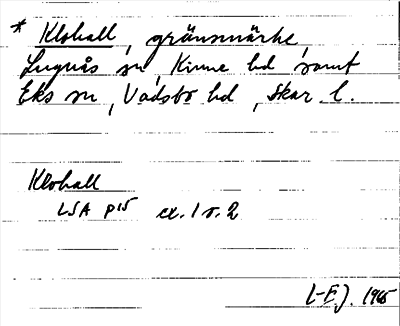 * Klohall, gränsmärke,
Lugnås sn, Kinne hd, samt
Eks sn, Vadsbo hd, Skar. l.
Klohall
LSA P15 ex. 1 o. 2
L-E.J. 1965